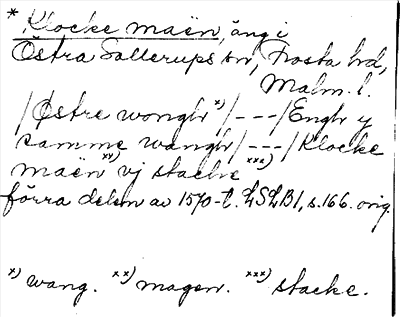 * Klocke maën, äng i
Östra Sallerups sn, Frosta hd,
Malm. l.
/Østre wonghr x)/---/Enghr y
samme wanghr/---/Klocke
maën xx) vj stackr xxx)
förra delen av 1570-t. LSLB1, s. 166. orig.
x) wang. xx) magen. xxx) stacke.